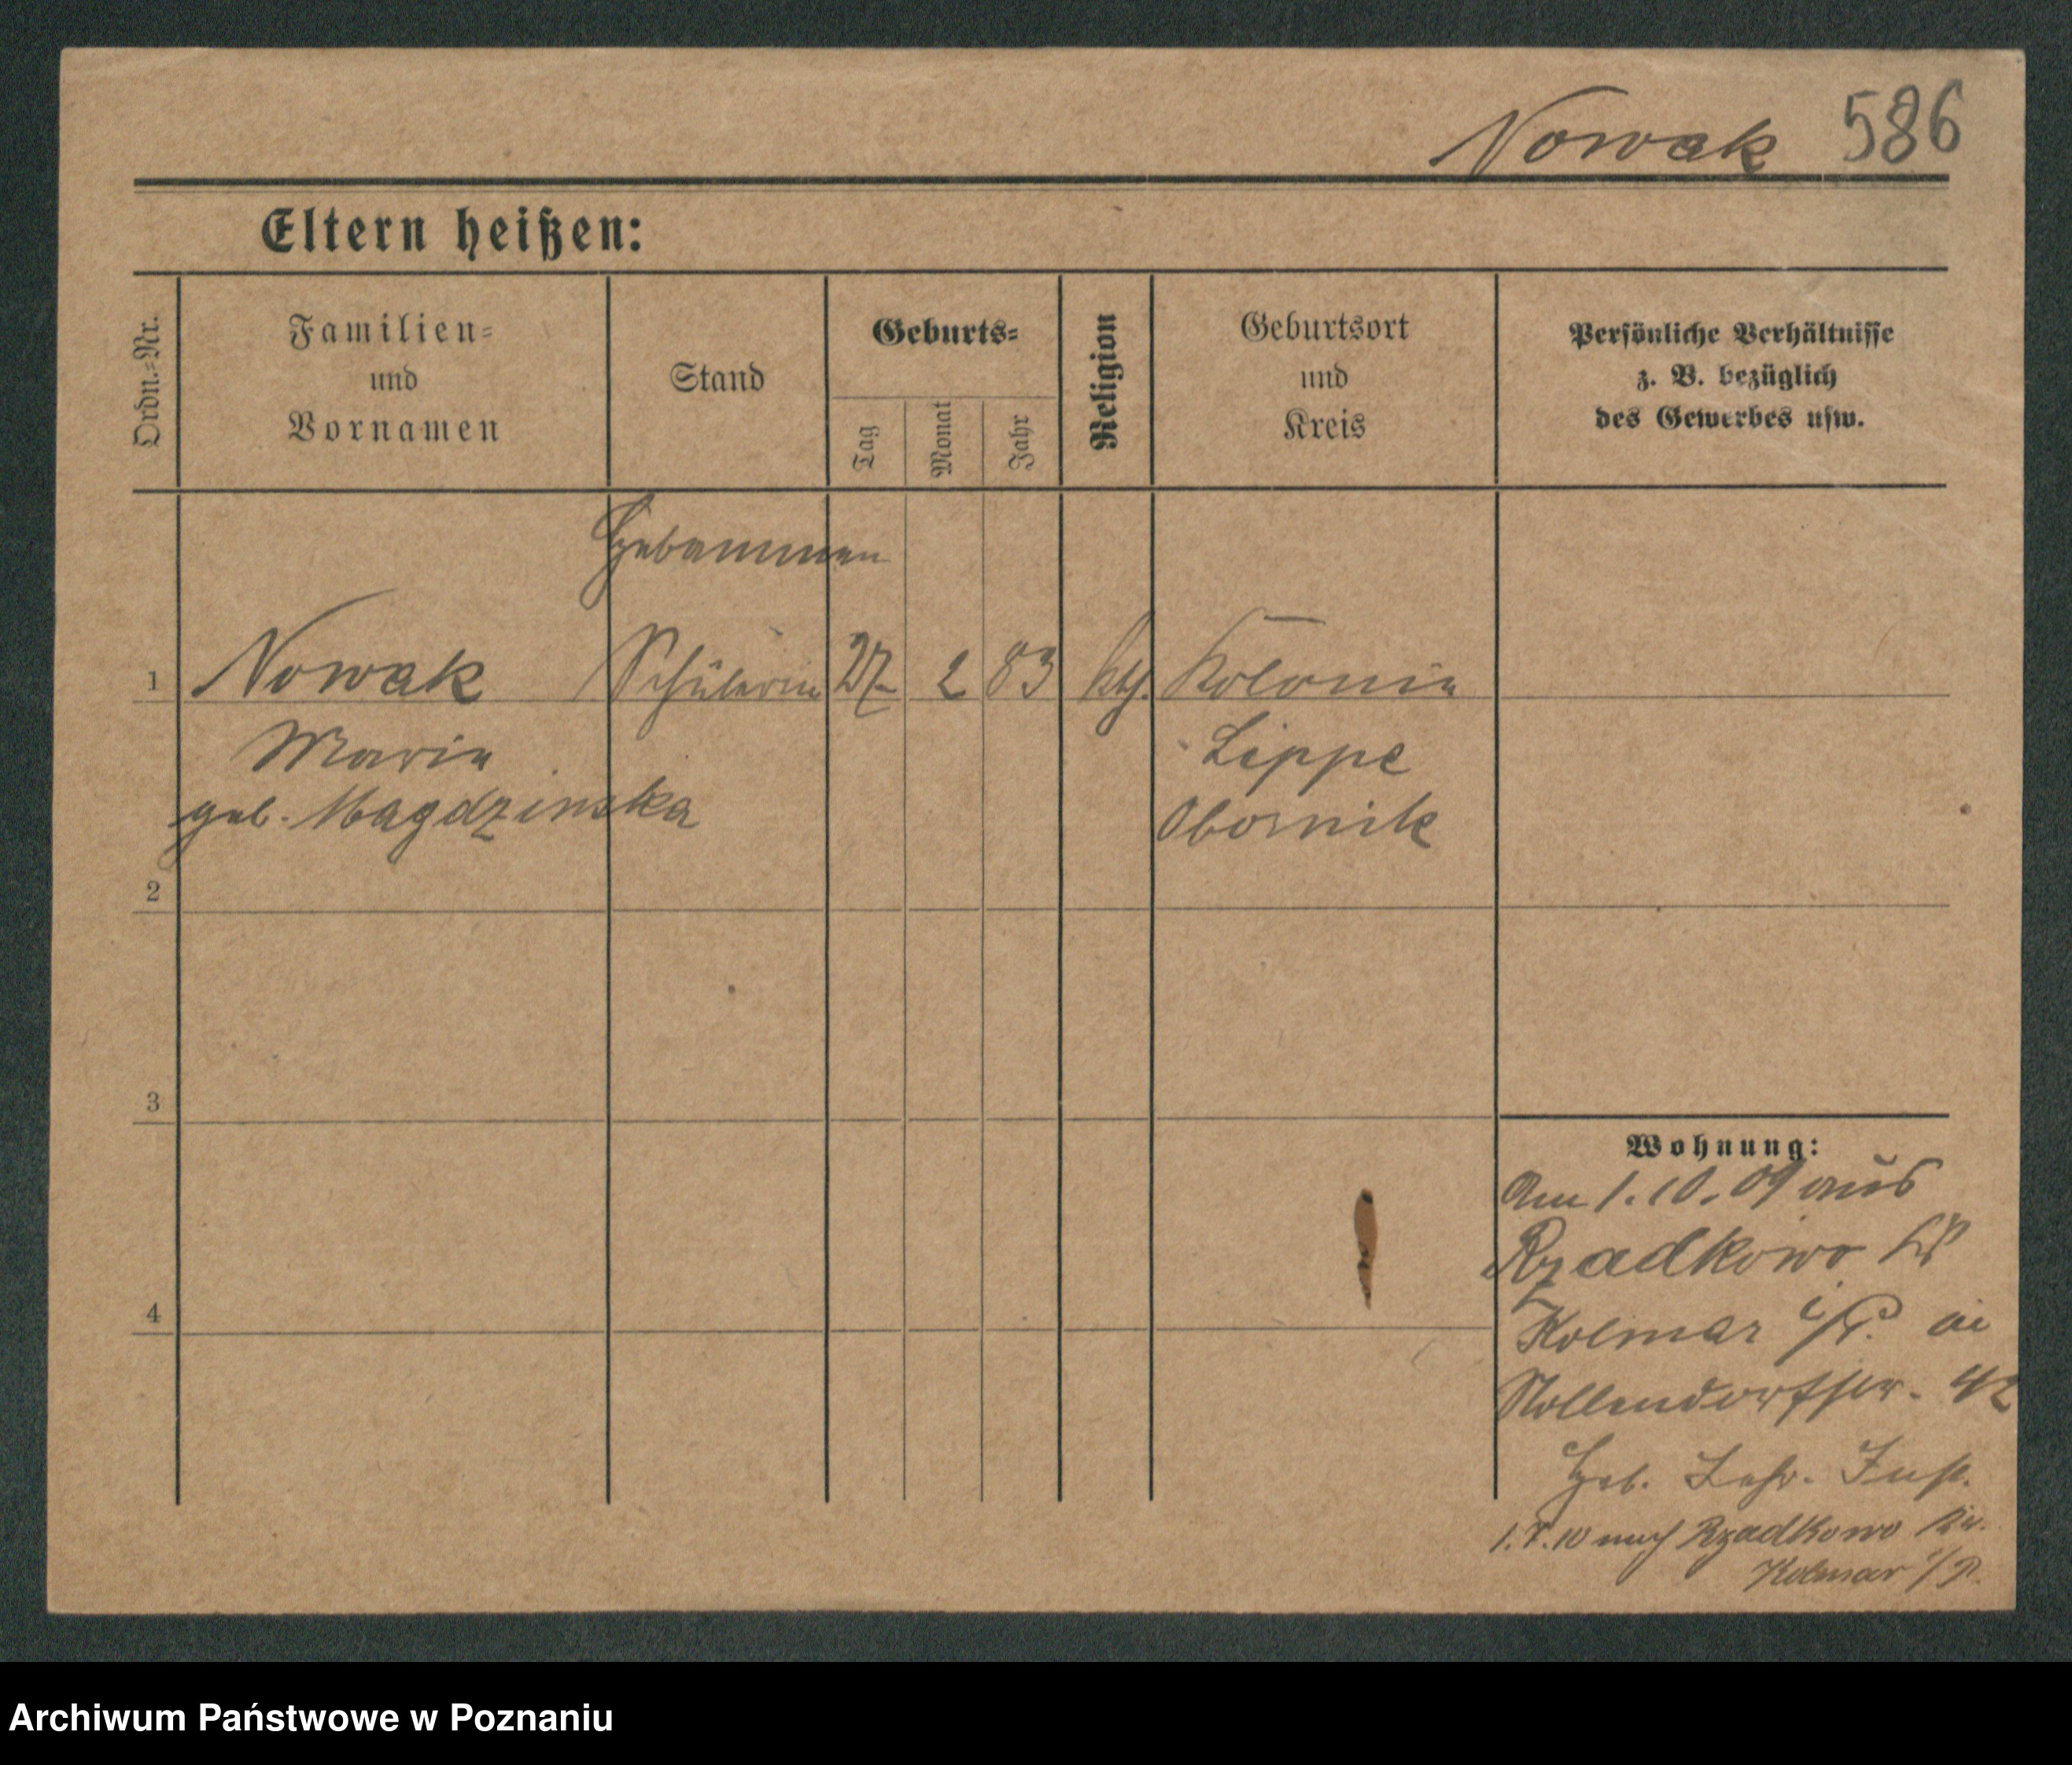 Nowak 586
Eltern heißen:
Ordn.-Nr.
Familien-
und
Vornamen
Stand
Geburts-
Tag
Monat
Jahr
Religion
Geburtsort
und
Kreis
Persönliche Verhältnisse
z. B. bezüglich
des Gewerbes usw.
Hebammen
1 Nowak Schülerin 27 2 83 kth. Kolonie
Maria Lippe
geb. Magdzinska Obornik
2
3
4
Wohnung:
Am 1.10.09 aus
Rzadkowo Kr
Kolmar i/P. in
Nollendorfstr. 42
Heb. Lehr. Inst.
nach Rzadkowo Kr.
Kolmar i/P.
Archiwum Państwowe w Poznaniu